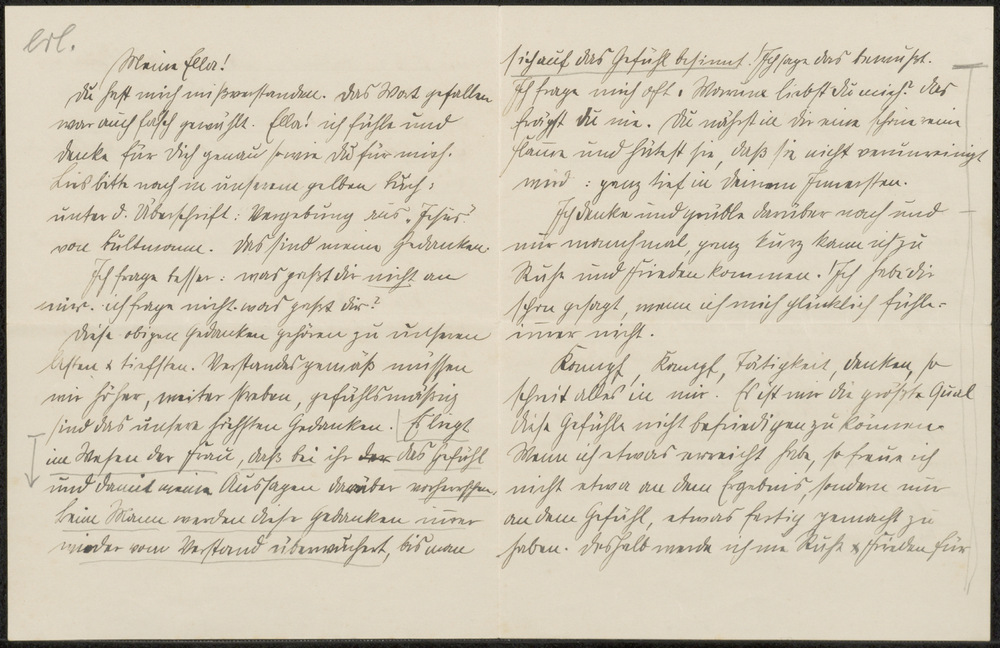 erl.
Meine Ella!
Du hast mich mißverstanden. Das Wort gefallen
war auch falsch gewählt. Ella! ich fühle und
denke für Dich genau so wie Du für mich.
Lies bitte nach in unserem gelben Buch:
unter d. Überschrift: Vergebung aus „Jesus"
von Bultmann. Das sind meine Gedanken.
Ich frage besser: was paßt dir nicht an
mir. ich frage nicht: was paßt dir?
Diese obigen Gedanken gehören zu unseren
besten & tiefsten. Verstandesgemäß müssen
wir höher, weiter streben, gefühlsmäßig
sind das unsere höchsten Gedanken. Es liegt
im Wesen der Frau, daß bei ihr der das Gefühl
und damit meine Aussagen darüber vorherrschen.
Beim Mann werden diese Gedanken immer
wieder vom Verstand überwuchert, bis man
sich auf das Gefühl besinnt. Ich sage das bewußt.
Ich frage mich oft: Warum liebst Du mich? Das
frägst du nie. Du nährst in Dir eine schöne reine
Flamme und hütest sie, daß sie nicht verunreinigt
wird: ganz tief in Deinem Innersten.
Ich denke und grüble darüber nach und
nur manchmal, ganz kurz kann ich zu
Ruhe und Frieden kommen. Ich habe dir
schon gesagt, wenn ich mich glücklich fühle:
immer nicht.
Kampf, Kampf, Tätigkeit, denken, so
schreit alles in mir. Es ist mir die größte Qual
diese Gefühle nicht befriedigen zu können.
Wenn ich etwas erreicht habe, so freue ich
nicht etwa an dem Ergebnis, sondern nur
an dem Gefühl, etwas fertig gemacht zu
haben. Deshalb werde ich nie Ruhe & Frieden für